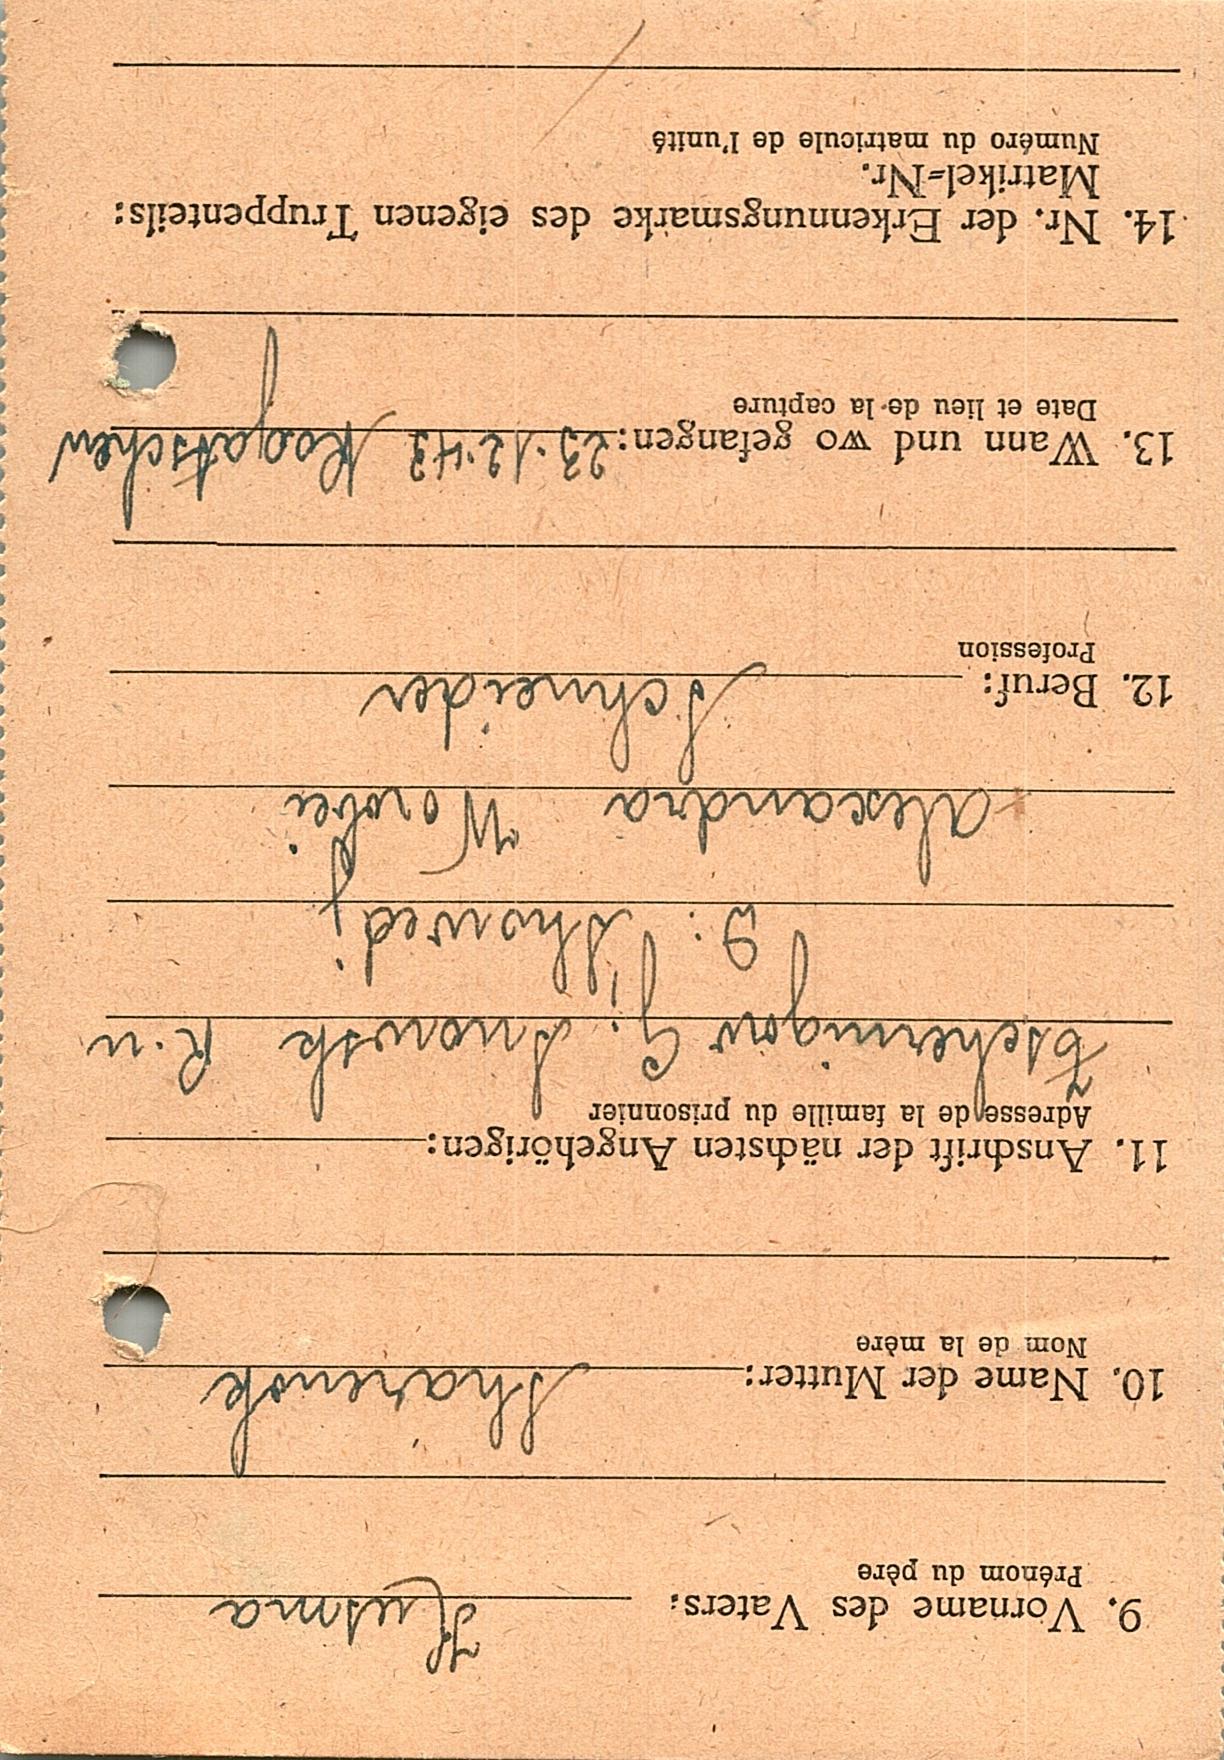 9. Vorname des Vaters: Kusma
Prénom du père
10. Name der Mutter:
Nom de la mère
11. Anschrift der nächsten Angehörigen:
Adresse de la famille du prisonnier
Tschernigow G. Snowsk R.n
Alexandra Worobei
12. Beruf: Schneider
Profession
13. Wann und wo gefangen: 23.12.43 Rogatschew
Date et lieu de la capture
14. Nr. der Erkennungsmarke des eigenen Truppenteils:
Matrikel-Nr.
Numéro du matricule de l'unité